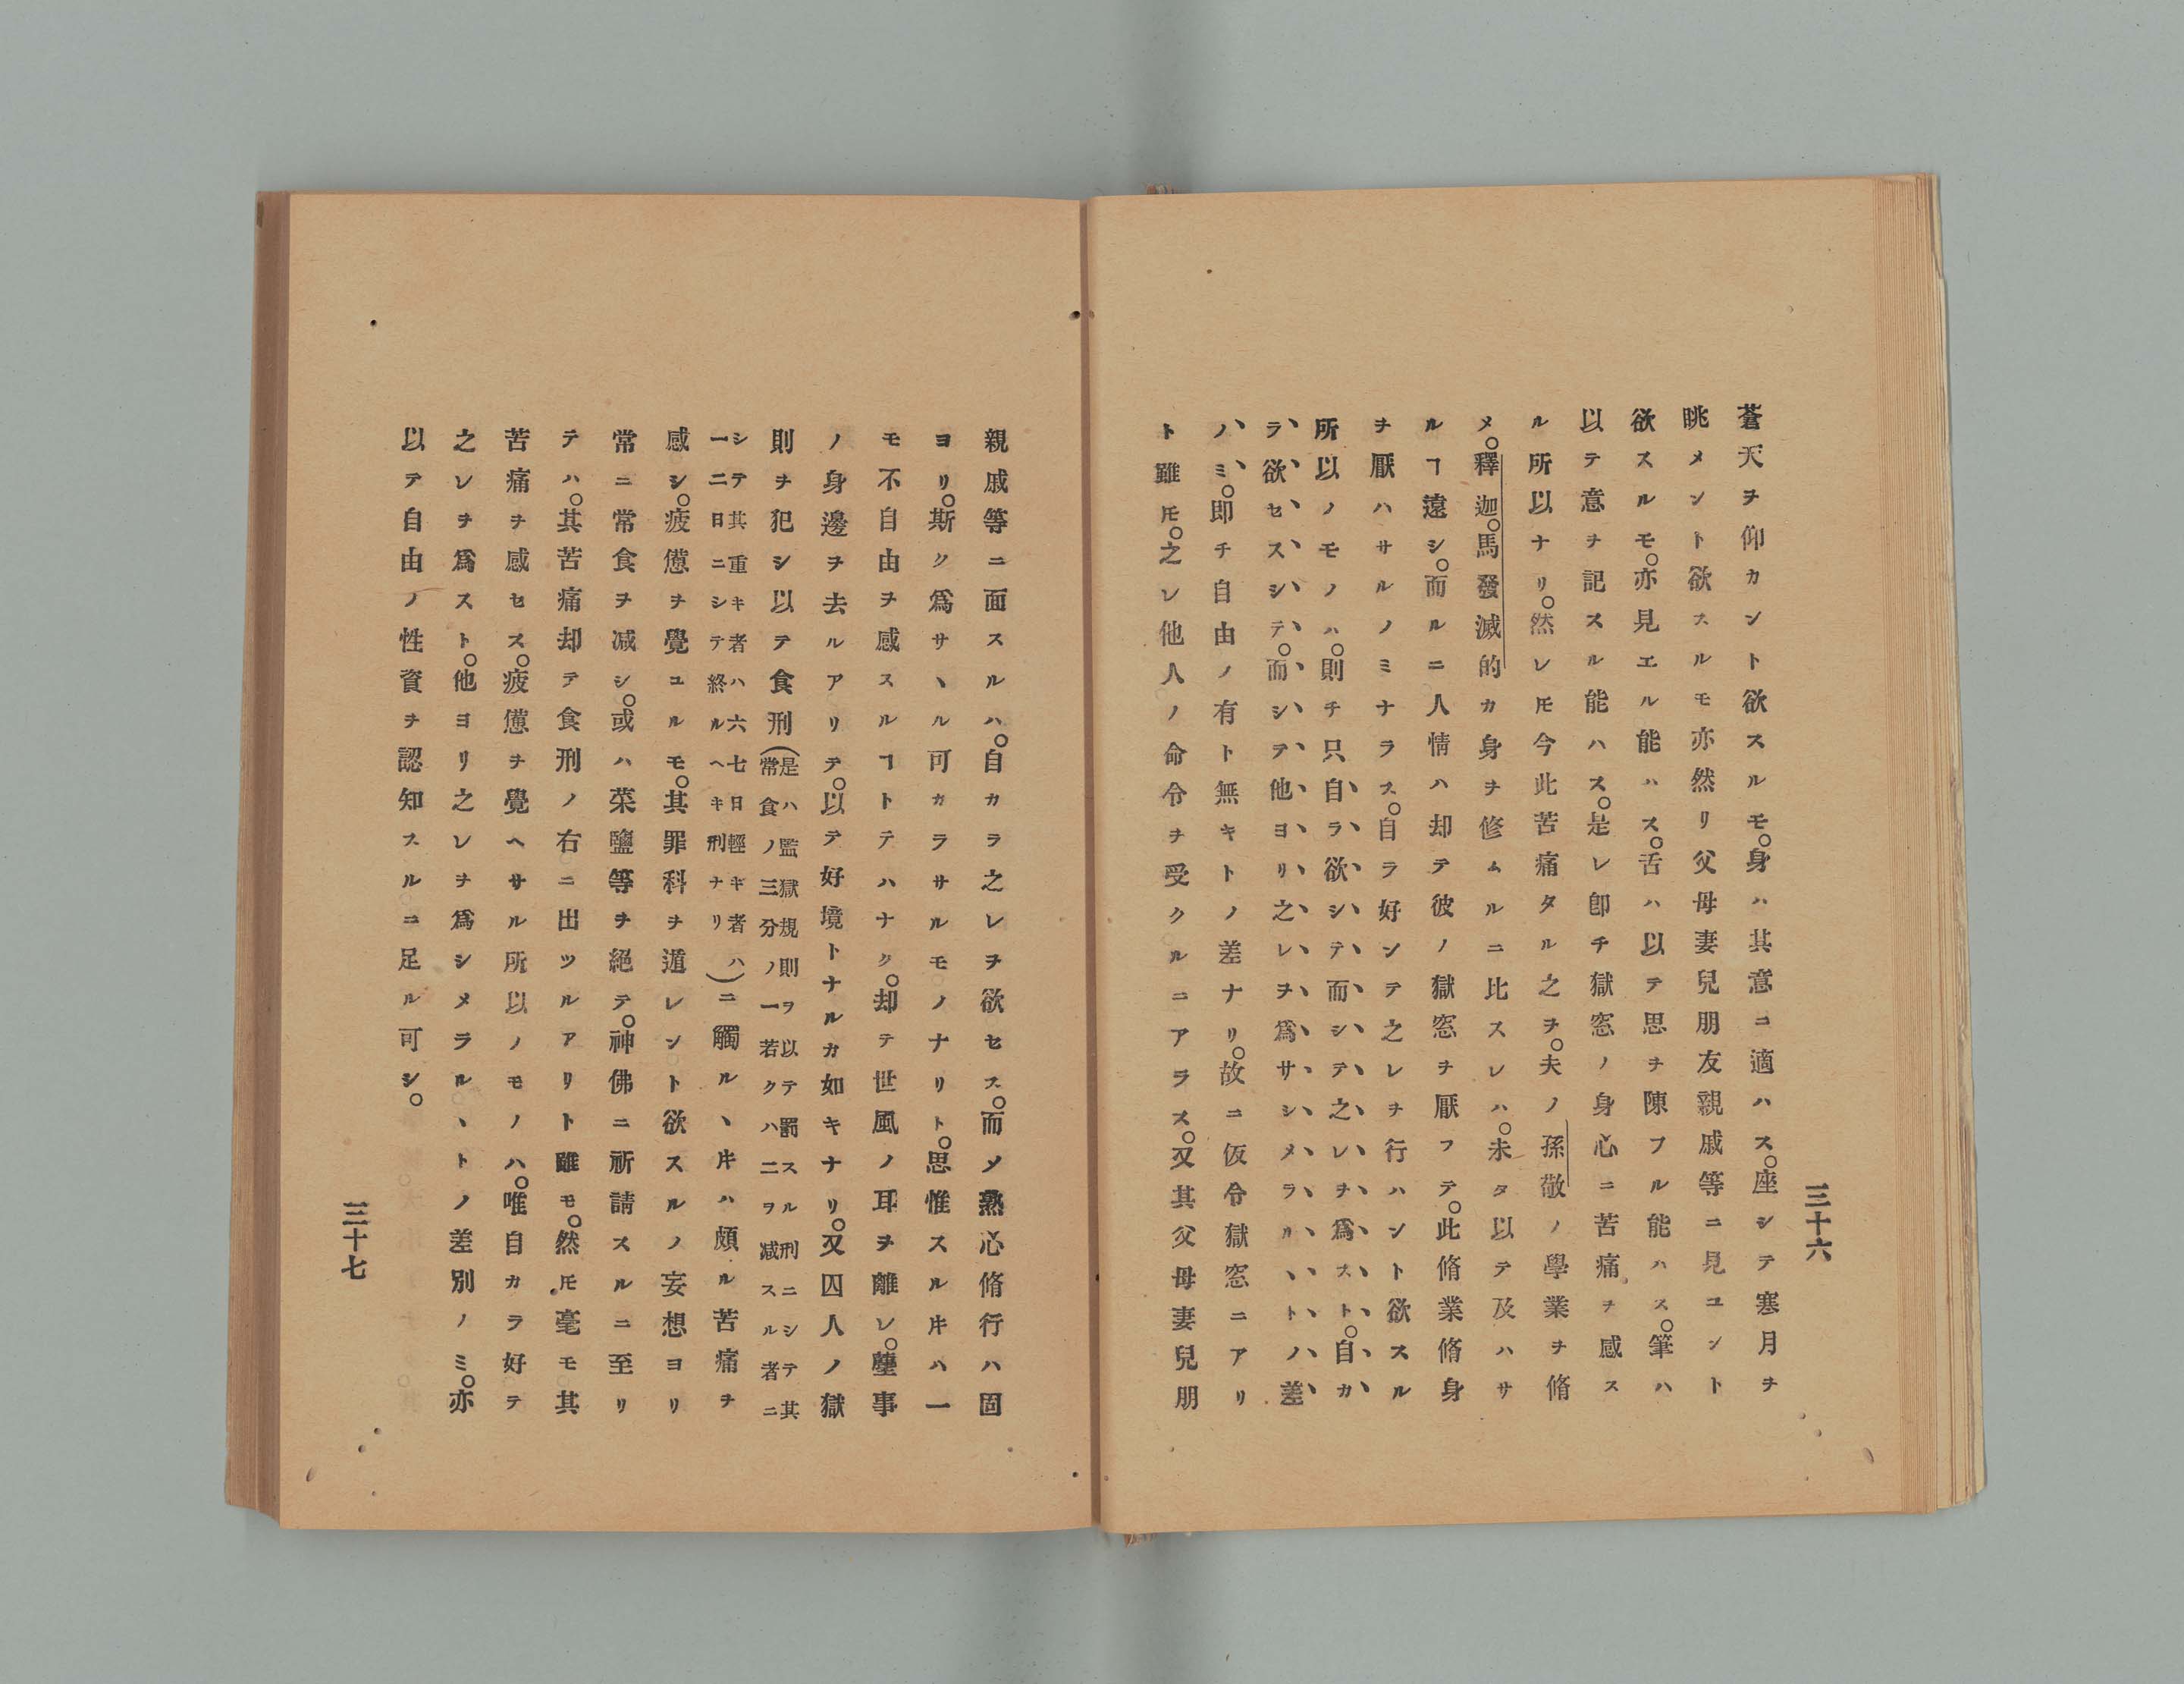 三十六
蒼天ヲ仰カント欲スルモ。身ハ其意ニ適ハス。座シテ寒月ヲ
眺メント欲スルモ亦然リ父母妻兒朋友親戚等ニ見ユント
欲スルモ。亦見エル能ハス。舌ハ以テ思ヲ陳フル能ハス。筆ハ
以テ意ヲ記スル能ハス。是レ卽チ獄窓ノ身心ニ苦痛ヲ感ス
ル所以ナリ。然レ𪜈今此苦痛タル之ヲ。夫ノ孫敬ノ學業ヲ脩
メ。釋迦。馬發滅的カ身ヲ修ムルニ比スレハ。未タ以テ及ハサ
ルヿ遠シ。而ルニ人情ハ却テ彼ノ獄窓ヲ厭フテ。此脩業脩身
ヲ厭ハサルノミナラス。自ラ好ンテ之レヲ行ハント欲スル
所以ノモノハ。則チ只自ラ欲シテ而シテ之レヲ爲スト。自カ
ラ欲セスシテ。而シテ他ヨリ之レヲ爲サシメラルヽトノ差
ノミ。卽チ自由ノ有ト無キトノ差ナリ。故ニ仮令獄窓ニアリ
ト雖𪜈。之レ他人ノ命令ヲ受クルニアラス。又其父母妻兒朋
親戚等ニ面スルハ。自カラ之レヲ欲セス。而メ熱心脩行ハ固
ヨリ。斯ク爲サヽル可カラサルモノナリト。思惟スル𪜀ハ一
モ不自由ヲ感スルヿトテハナク。却テ世風ノ耳ヲ離レ。塵事
ノ身邊ヲ去ルアリテ。以テ好境トナルカ如キナリ。又囚人ノ獄
則ヲ犯シ以テ食刑(是ハ監獄規則ヲ以テ罰スル刑ニシテ其
常食ノ三分ノ一若クハ二ヲ減スル者ニ
シテ其重キ者ハ六七日輕キ者ハ
一二日ニシテ終ルヘキ刑ナリ)ニ觸ルヽ𪜀ハ頗ル苦痛ヲ
感シ。疲憊ヲ覺ユルモ。其罪科ヲ遁レント欲スルノ妄想ヨリ
常ニ常食ヲ減シ。或ハ菜鹽等ヲ絕テ。神佛ニ祈請スルニ至リ
テハ。其苦痛却テ食刑ノ右ニ出ツルアリト雖モ。然𪜈毫モ其
苦痛ヲ感セス。疲憊ヲ覺ヘサル所以ノモノハ。唯自カラ好テ
之レヲ爲スト。他ヨリ之レヲ爲シメラルヽトノ差別ノミ。亦
以テ自由ノ性資ヲ認知スルニ足ル可シ。
三十七